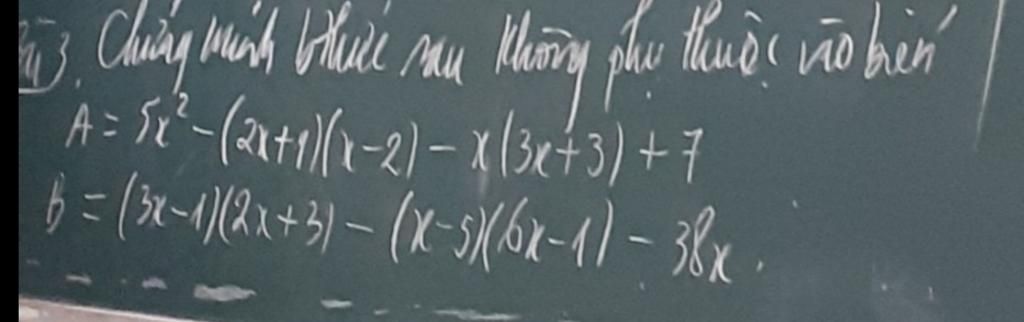 Bài 3. Chứng minh bthức sau không phụ thuộc vào biến
A = 5x² - (2x+1)(x-2) - x(3x+3) + 7
B = (3x-1)(2x+3) - (x-5)(6x-1) - 38x.